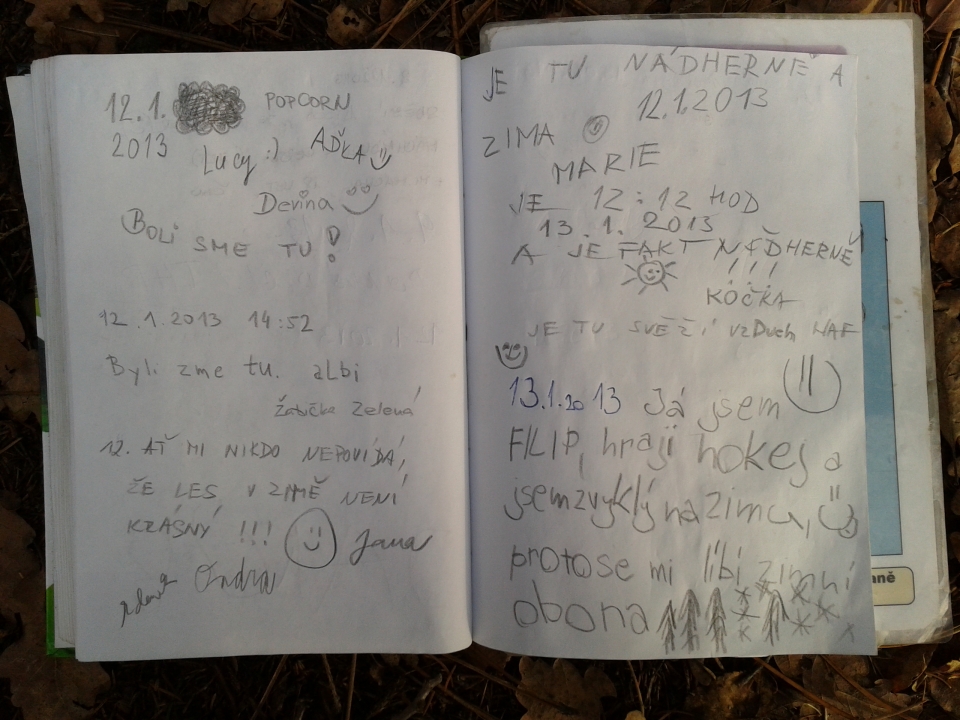 12.1. POPCORN
2013 Lucy :) AĎKA
Devina
BOLI SME TU!
12.1.2013 14:52
Byli zme tu. albi
Žabička Zelená
12. AŤ MI NIKDO NEPOVÍDÁ,
ŽE LES V ZIMĚ NENÍ
KRÁSNÝ !!! Jana
Ondra
JE TU NÁDHERNĚ A
12.1.2013
ZIMA
MARIE
JE 12:12 HOD
13.1.2013
A JE FAKT NÁDHERNĚ
!!!
KOČKA
JE TU SVĚŽÍ VZDUCH HAF
13.1.2013 Já jsem
FILIP, hraji hokej a
jsem zvyklý na zimu,
protose mi líbí zimní
obona
aně